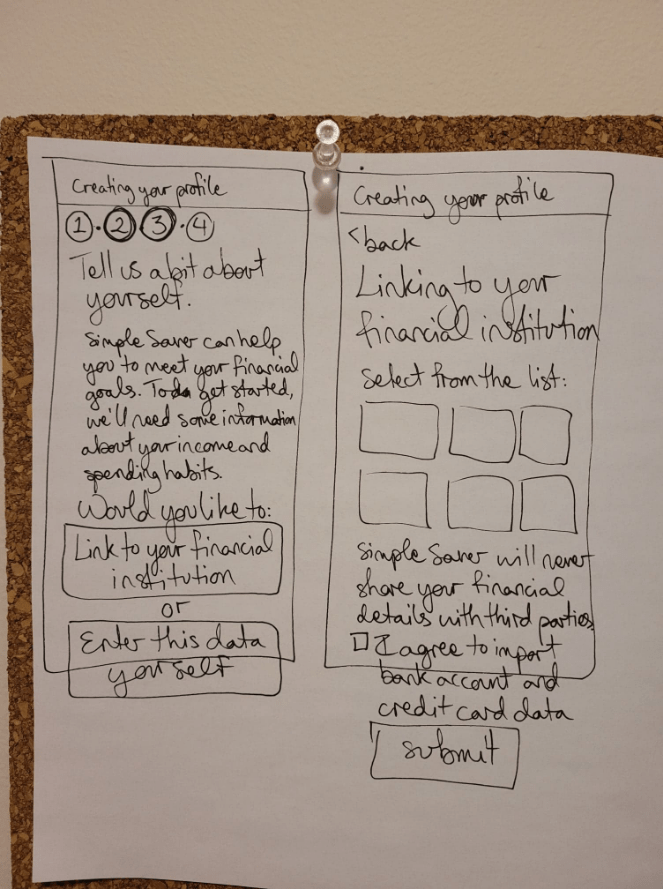 Creating your profile
1 · 2 · 3 · 4
Tell us a bit about
yourself.
Simple Saver can help
you to meet your financial
goals. To get started,
we'll need some information
about your income and
spending habits.
Would you like to:
Link to your financial
institution
or
Enter this data
yourself
Creating your profile
<back
Linking to your
financial institution
Select from the list:
Simple Saver will never
share your financial
details with third parties.
I agree to import
bank account and
credit card data
submit